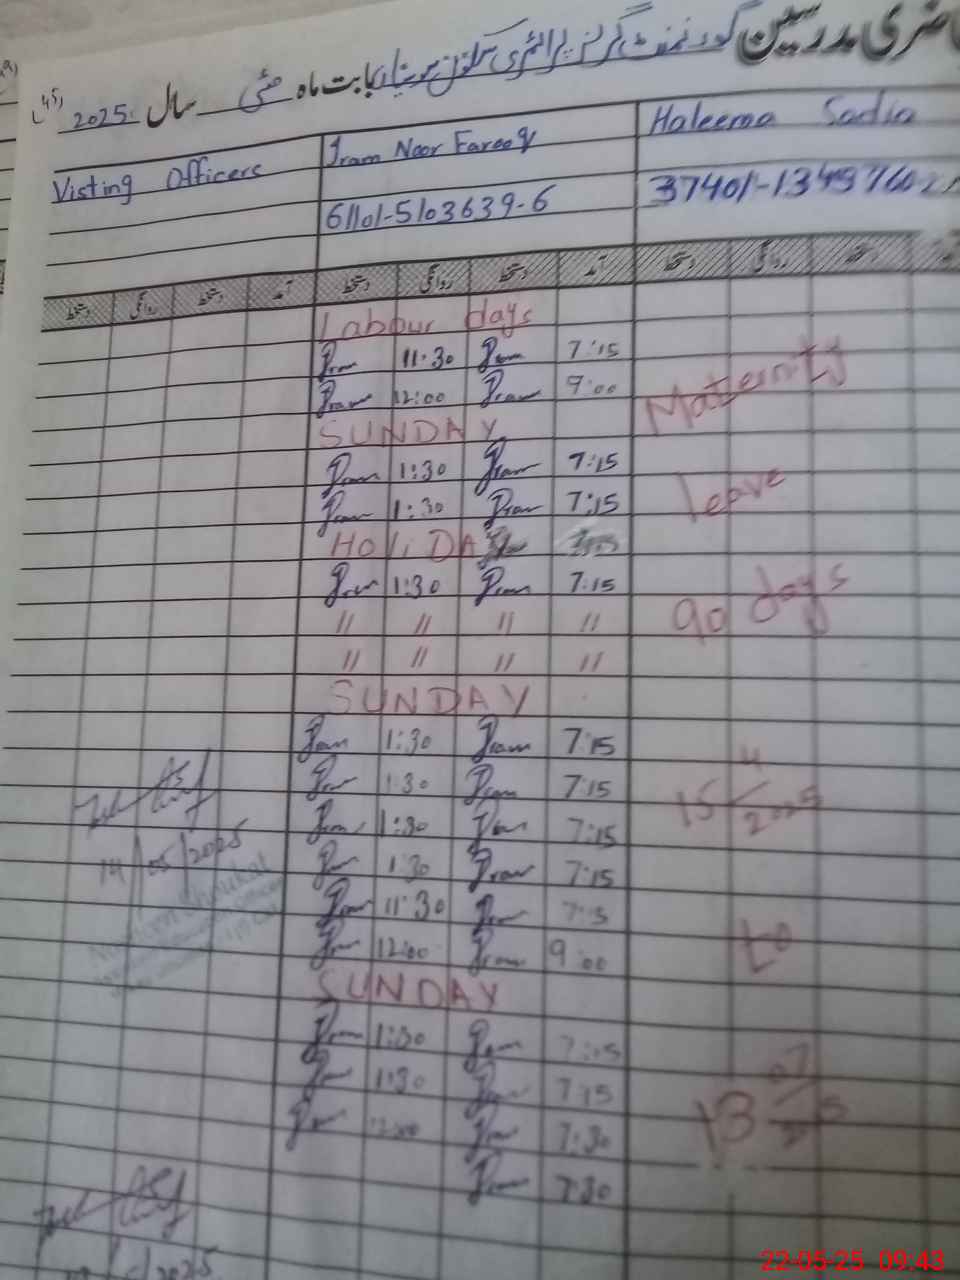 ضری مدرسین گورنمنٹ گرلز پرائمری سکول بابت ماہ مئی سال 2025
Visting Officers Iram Noor Farooq Haleema Sadia
61101-5103639-6 37401-1349760
دستخط روانگی دستخط آمد دستخط روانگی دستخط آمد دستخط روانگی دستخط
Labour days
Iram 11:30 Iram 7:15
Iram 12:00 Iram 9:00
Maternity
SUNDAY
Iram 1:30 Iram 7:15
Iram 1:30 Iram 7:15
leave
HOliDAY
Iram 1:30 Iram 7:15
90 days
" " " "
" " " "
SUNDAY
Iram 1:30 Iram 7:15
Iram 1:30 Iram 7:15
15 4/2025
Iram 1:30 Iram 7:15
14/05/2025
Iram 1:30 Iram 7:15
Iram 11:30 Iram 7:15
Iram 12:00 Iram 9:00
to
SUNDAY
Iram 1:30 Iram 7:15
Iram 1:30 Iram 7:15
13 07/25
Iram 12:00 Iram 7:30
Iram 7:30
22-05-25 09:43